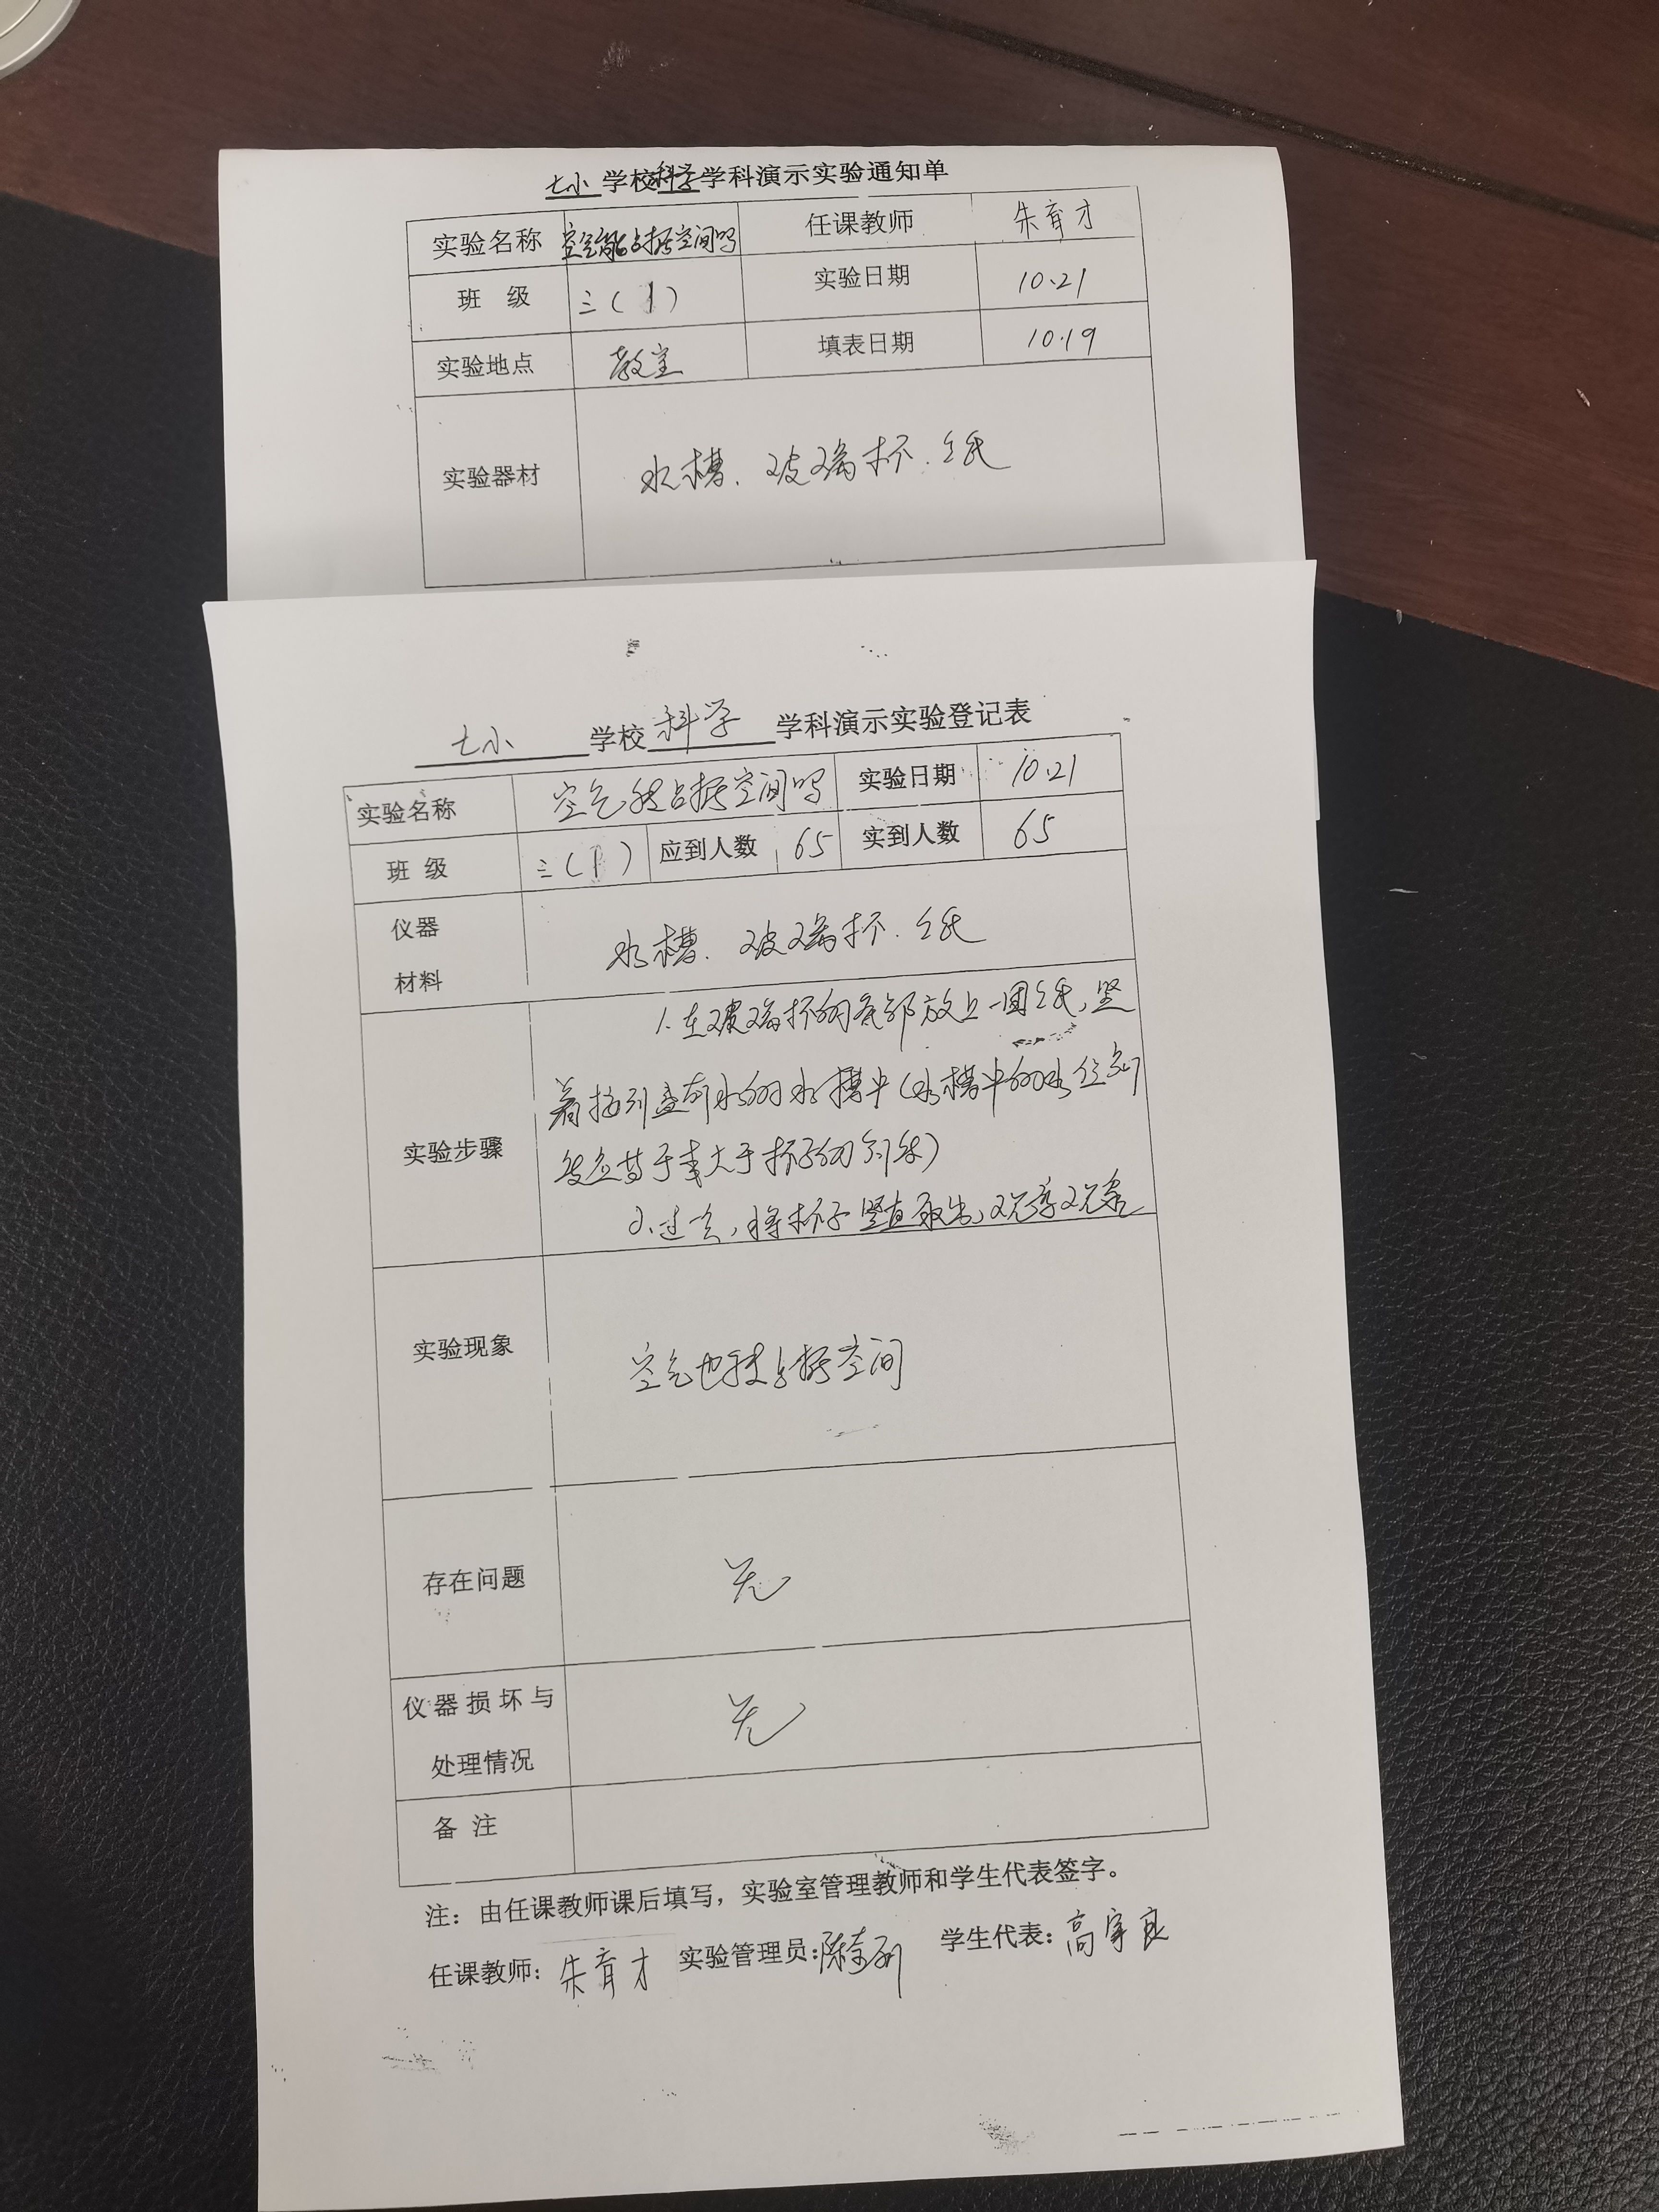 七小 学校科学学科演示实验通知单
实验名称 空气能占据空间吗 任课教师 朱育才
班 级 三（1） 实验日期 10.21
实验地点 教室 填表日期 10.19
实验器材 水槽、玻璃杯、纸
七小 学校 科学 学科演示实验登记表
实验名称 空气能占据空间吗 实验日期 10.21
班 级 三（1） 应到人数 65 实到人数 65
仪器
材料
水槽、玻璃杯、纸
1.在玻璃杯的底部放上一团纸,竖
着按到盛有水的水槽中(水槽中的水位
实验步骤
等于或大于杯子的
2.过一会,将杯子竖直取出,观察
实验现象 空气也能占据空间
存在问题 无
仪器损坏与
处理情况
无
备 注
注：由任课教师课后填写，实验室管理教师和学生代表签字。
任课教师：朱育才 实验管理员：陈 学生代表：高宇良